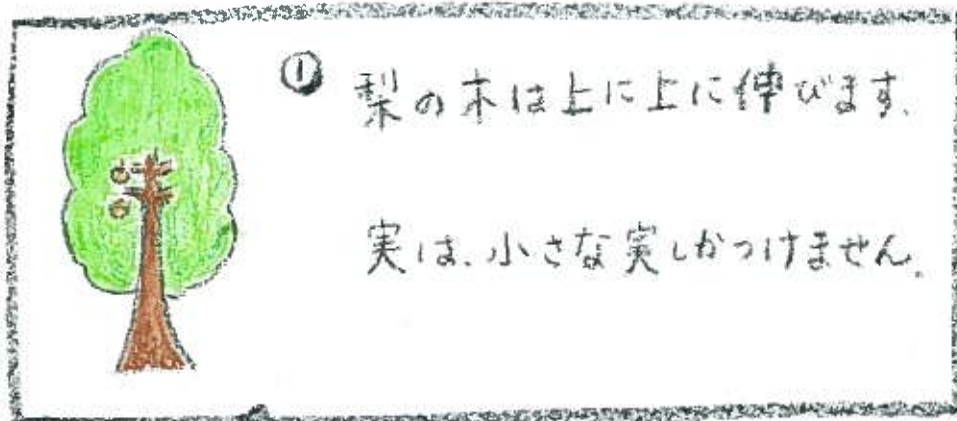 ① 梨の木は上に上に伸びます.
実は、小さな実しかつけません。